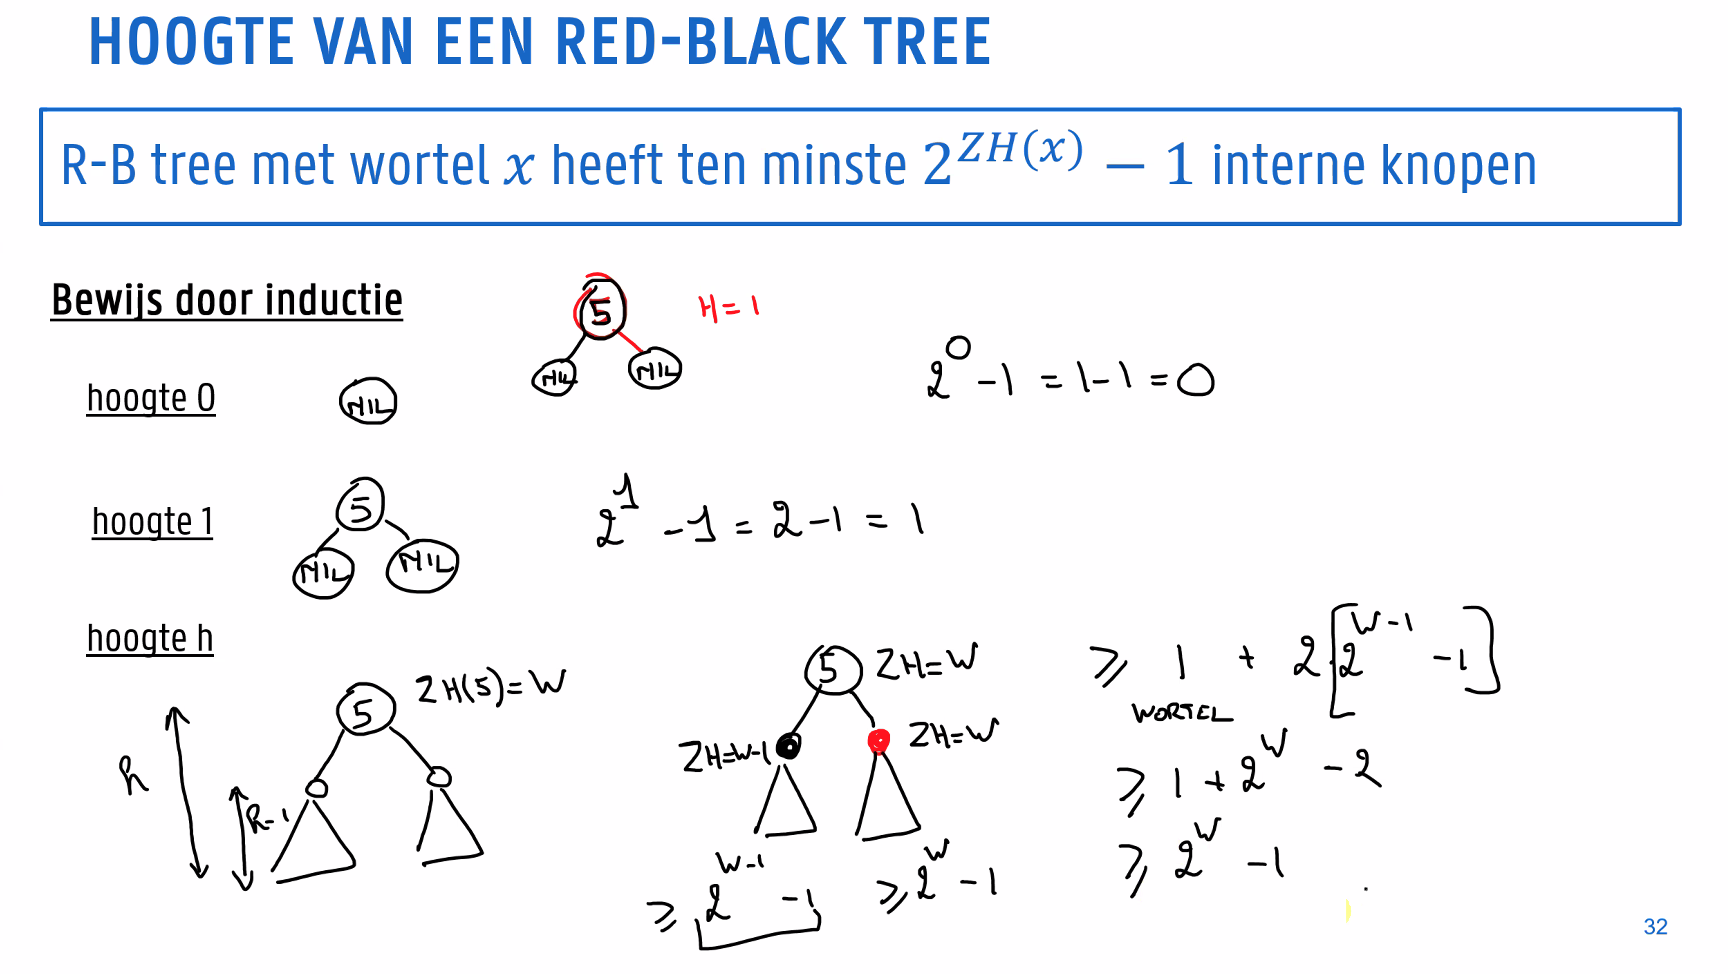 HOOGTE VAN EEN RED-BLACK TREE
R-B tree met wortel x heeft ten minste 2^{ZH(x)} − 1 interne knopen
Bewijs door inductie
5
H = 1
NIL NIL
hoogte 0
NIL
2^0 - 1 = 1 - 1 = 0
hoogte 1
5
NIL NIL
2^1 - 1 = 2 - 1 = 1
hoogte h
5
ZH(5) = W
h
h-1
5
ZH=W
ZH=W-1
ZH=W
≥ 2^{W-1} - 1
≥ 2^W - 1
≥ 1 + 2[2^{W-1} - 1]
WORTEL
≥ 1 + 2^W - 2
≥ 2^W - 1
32